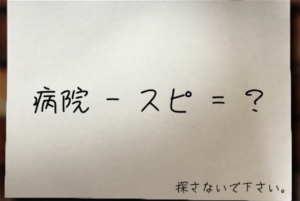 病院 － スピ = ?
探さないで下さい。